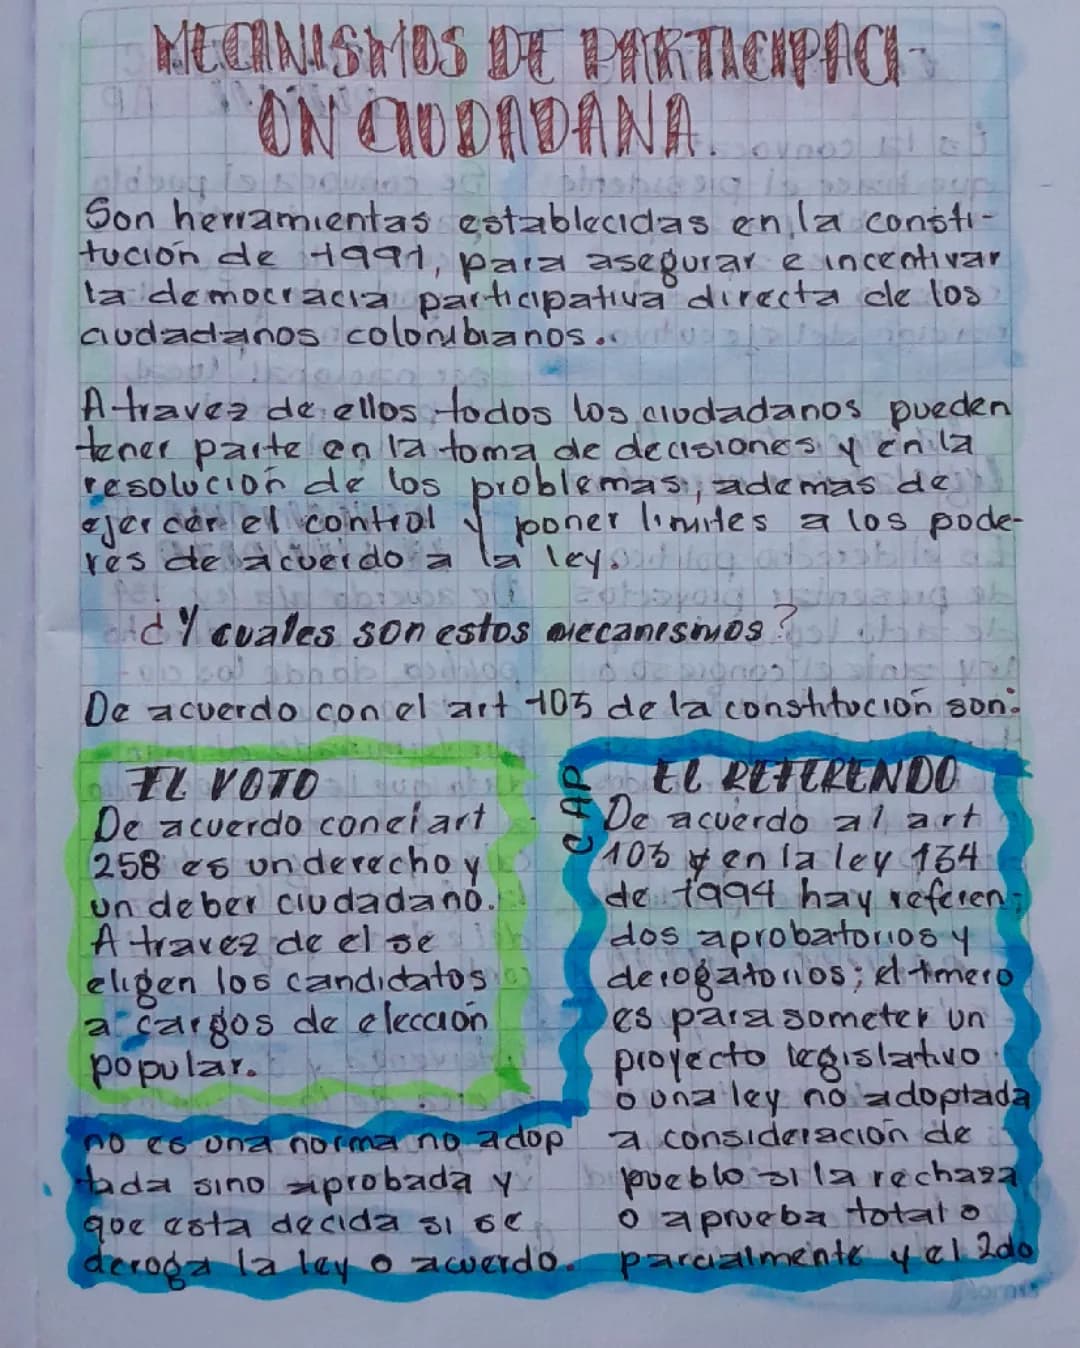 MECANISMOS DE PARTICIPACI-
ON CIUDADANA.
Son herramientas establecidas en la consti-
tución de 1991, para asegurar e incentivar
la democracia participativa directa de los
ciudadanos colombianos.
A travez de ellos todos los ciudadanos pueden
tener parte en la toma de decisiones y en la
resolución de los problemas, ademas de
ejercer el control y poner limites a los pode-
res de acuerdo a la ley.
¿Y cuales son estos mecanismos?
De acuerdo con el art 103 de la constitución son:
EL VOTO
De acuerdo con el art
258 es un derecho y
un deber ciudadano.
A travez de el se
eligen los candidatos
a cargos de elección
popular.
CAP
EL REFERENDO
De acuerdo al art
103 y en la ley 134
de 1994 hay referen-
dos aprobatorios y
derogatorios; el 1mero
es para someter un
proyecto legislativo
o una ley no adoptada
a consideración de
pueblo si la rechaza
o aprueba total o
parcialmente y el 2do
no es una norma no adop
tada sino aprobada y
que esta decida si se
deroga la ley o acuerdo.